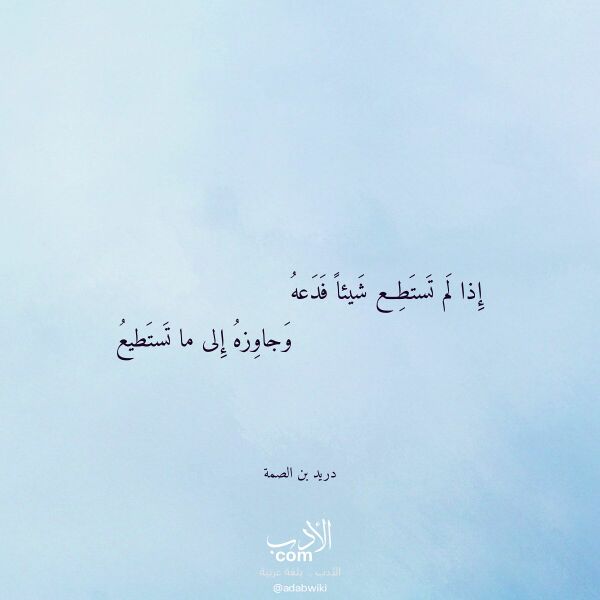 إِذا لَم تَستَطِـع شَيئاً فَدَعهُ
وَجاوِزهُ إِلى ما تَستَطيعُ
دريد بن الصمة
الأدب
com
الأدب .. بلغة عربية
@adabwiki